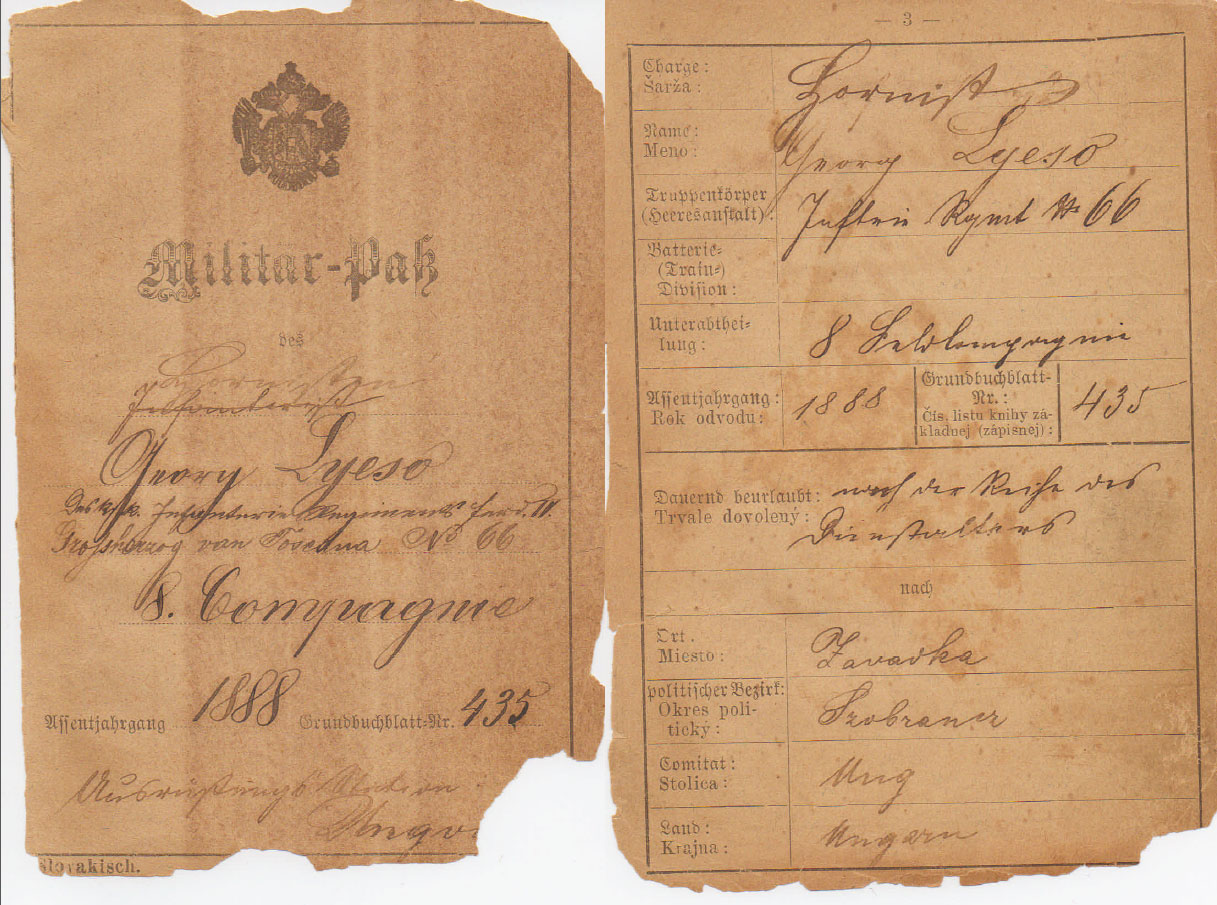 Militär-Paß
des
Infanterist
Georg Lyeso
Des k.u.k. Infanterie Regiments Ferd. IV.
Grossherzog von Toscana No 66
8. Compagnie
Assentjahrgang 1888 Grundbuchblatt-Nr. 435
Ausrüstungs Station
Slovakisch.
— 3 —
Charge:
Šarža:
Hornist
Name:
Meno:
Georg Lyeso
Truppenkörper
(Heeresanstalt):
Inftrie Rgmt № 66
Batterie-
(Train-)
Division:
Unterabthei-
lung:
8 Feldkompagnie
Assentjahrgang:
Rok odvodu:
1888
Grundbuchblatt-
Nr.:
Čís. listu knihy zá-
kladnej (zápisnej):
435
Dauernd beurlaubt:
Trvale dovolený:
nach der Reihe des
Dienstalters
nach
Ort.
Miesto:
Zavadka
politischer Bezirk:
Okres poli-
tický:
Szobrancz
Comitat:
Stolica:
Ung
Land:
Krajna:
Ungarn